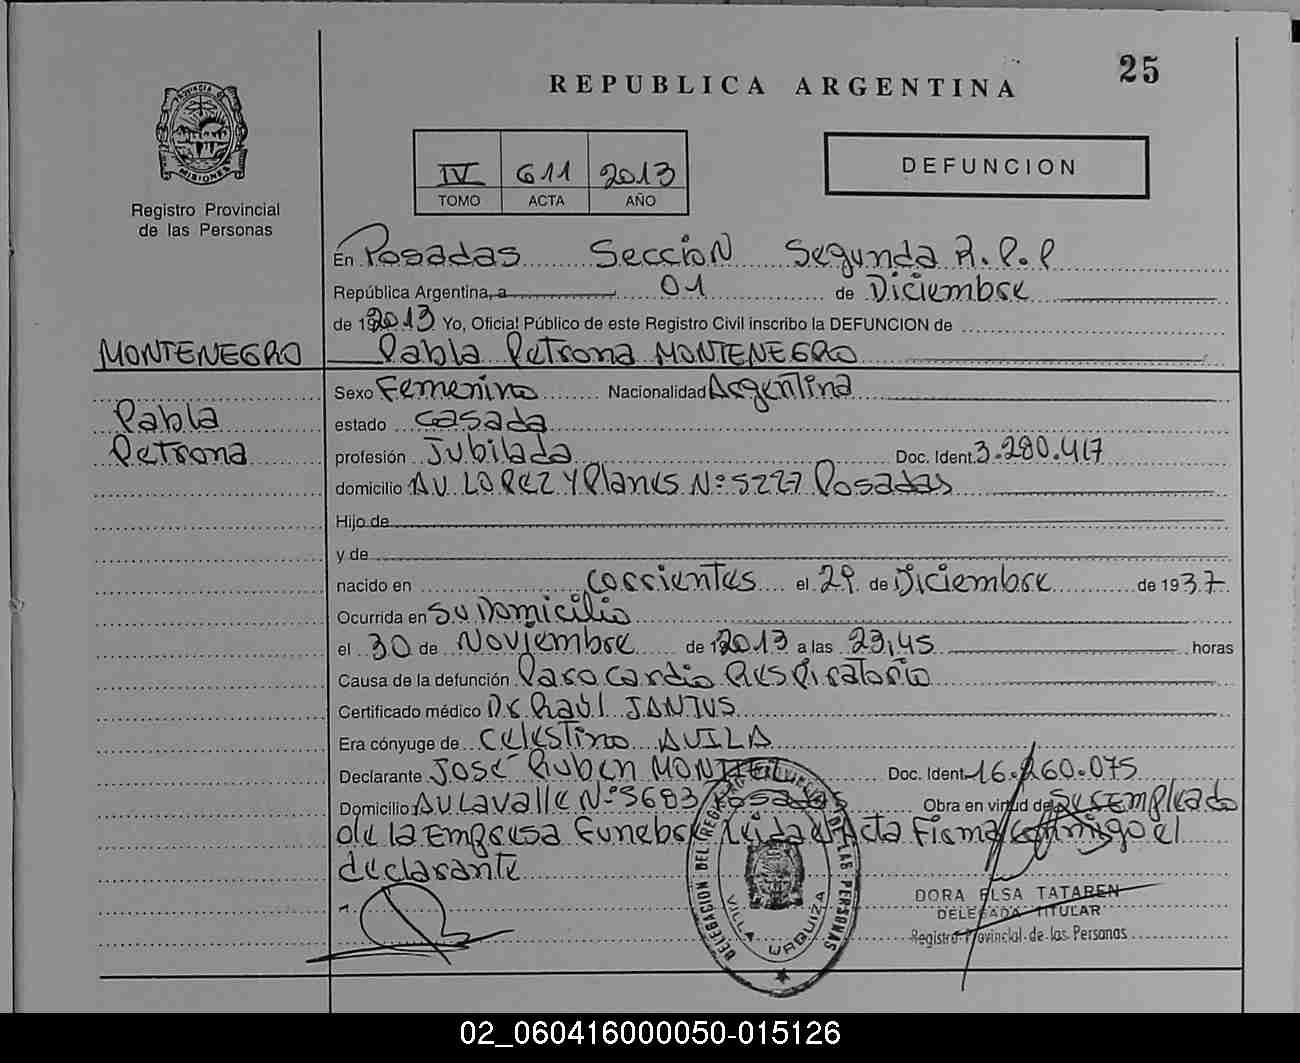 25
REPUBLICA ARGENTINA
PROVINCIA DE MISIONES
Registro Provincial
de las Personas
IV 611 2013
TOMO ACTA AÑO
DEFUNCION
En Posadas Seccion Segunda R.P.P
República Argentina, a 01 de Diciembre
de 192013 Yo, Oficial Público de este Registro Civil inscribo la DEFUNCION de
MONTENEGRO Pabla Petrona MONTENEGRO
Sexo Femenino Nacionalidad Argentina
Pabla
estado casada
Petrona
profesión Jubilada Doc. Ident. 3.280.417
domicilio AV. LOPEZ Y Planes Nº 5227 Posadas
Hijo de
y de
nacido en corrientes el 29 de Diciembre de 1937
Ocurrida en Su Domicilio
el 30 de Noviembre de 192013 a las 23,45 horas
Causa de la defunción Paro cardio Respiratorio
Certificado médico Dr Raúl JANTUS
Era cónyuge de Celestino AVILA
Declarante José Ruben MONTIEL Doc. Ident. 16.260.075
Domicilio AV Lavalle Nº 3683 Posadas Obra en virtud de Ser Empleado
de la Empresa Funebre Leida el Acta Firma conmigo el
declarante
DELEGACION DEL REGISTRO PROVINCIAL DE LAS PERSONAS
VILLA URQUIZA
DORA ELSA TATAREN
DELEGADA TITULAR
Registro Provincial de las Personas
02_060416000050-015126